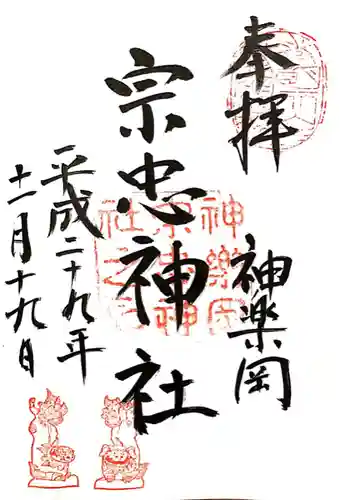 奉拝
神楽岡
宗忠神社
平成二十九年
十一月十九日
神樂岡
宗忠神
社之印